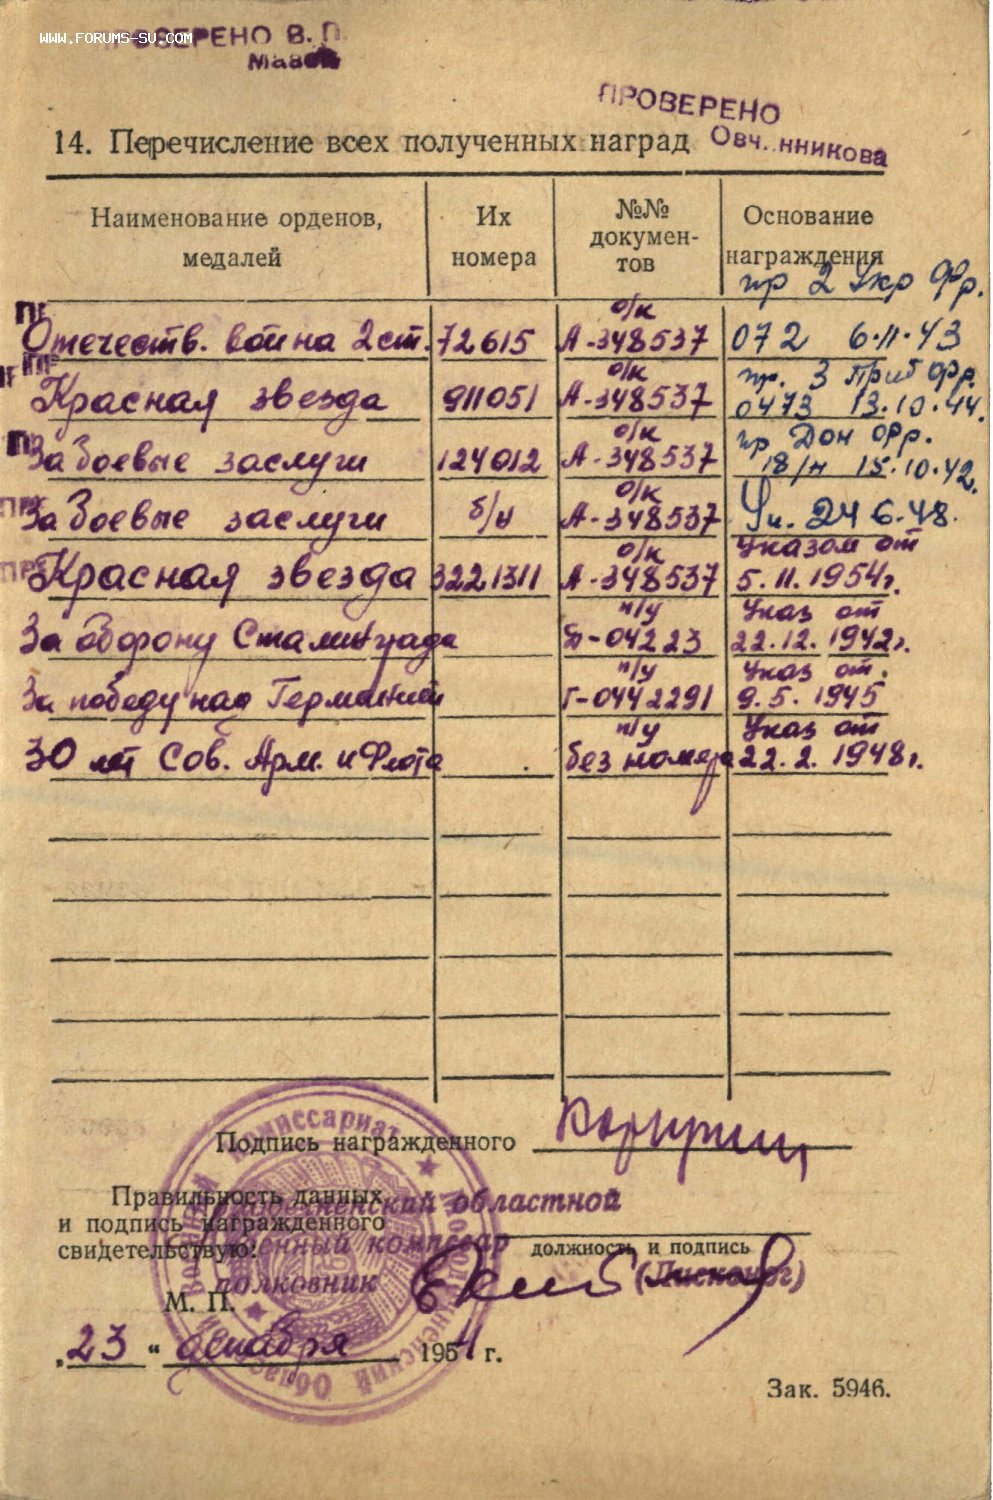 www.forums-su.com
ПРОВЕРЕНО В. П.
ПРОВЕРЕНО
Овч..нникова
14. Перечисление всех полученных наград
Наименование орденов, медалей
Их номера
№№ документов
Основание награждения
Отечеств. война 2 ст. 72615 о/к А-348537 пр 2 Укр Фр. 072 6·11·43
Красная звезда 911051 о/к А-348537 пр. 3 Приб Фр. 0473 13.10.44.
За боевые заслуги 124012 о/к А-348537 пр Дон Фр. 18/н 15.10.42.
За боевые заслуги б/н о/к А-348537 Ук. 24 6.48.
Красная звезда 3221311 о/к А-348537 Указом от 5.11.1954г.
За оборону Сталинграда п/у Б-04223 Указ от 22.12.1942г.
За победу над Германией п/у Г-0442291 Указ от. 9.5.1945
30 лет Сов. Арм. и Флота п/у без номера Указ от 22.2.1948г.
Подпись награжденного
Правильность данных
и подпись награжденного
свидетельствую:
областной
военный комиссар
полковник
должность и подпись
М. П.
„23" декабря 1954 г.
Военный Комиссариат
Зак. 5946.